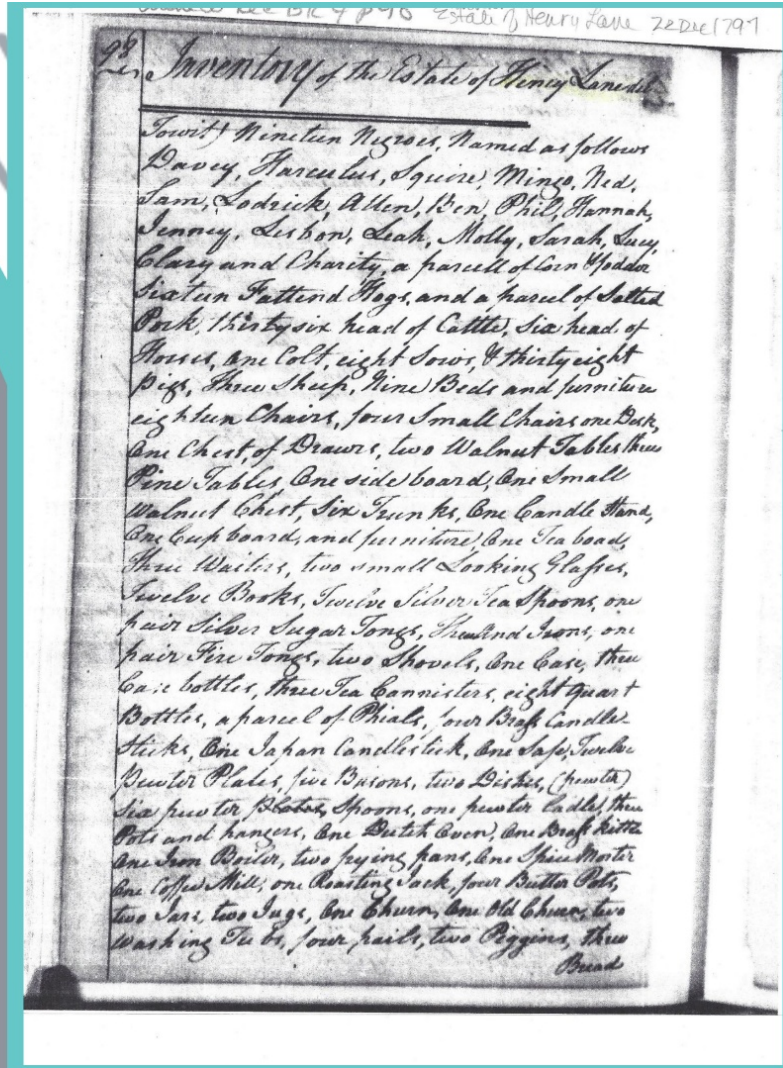 Rec Bk 4 p 98 Estate of Henry Lane 22 Dec 1797
98
Inventory of the Estate of Henry Lane
Towit) Nineteen Negroes, Named as follows
Davey, Harculus, Squire, Mingo, Ned,
Sam, Lodrick, Allen, Ben, Phil, Hannah,
Jenney, Lesbon, Leah, Molly, Sarah, Lucy,
Clary and Charity, a parcell of Corn & fodder
Sixteen Fattend Hogs, and a parcel of Salted
Pork, thirty six head of Cattle, Six head of
Horses, one Colt, eight Sows, & thirty eight
pigs, Three Sheep, Nine Beds and furniture
eighteen Chairs, four Small Chairs one Desk,
One Chest, of Drawrs, two Walnut Tables three
Pine Tables, One side board, One Small
Walnut Chest, Six Trunks, One Candle Stand,
One Cup board, and furniture, One Tea board,
Three Waiters, two small Looking Glasses,
Twelve Books, Twelve Silver Tea Spoons, one
pair Silver Sugar Tongs, Three And Irons, one
pair Fire Tongs, two Shovels, One Case, three
Case bottles, three Tea Cannisters, eight Quart
Bottles, a parcel of Phials, four Brass Candle
Sticks, One Japan Candlestick, One Safe, Twelve
Pewter Plates, five Basons, two Dishes, (pewter)
Six pewter plates, Spoons, one pewter Ladle, three
Pots and hangers, One Dutch Oven, One Brass kittle
One Iron Boiler, two frying pans, One Spice Morter
One Coffee Mill, one Roasting Jack, four Butter Pots,
two Jars, two Jugs, One Churn, One Old two
Washing Tubs, four pails, two Piggins, three
Bread